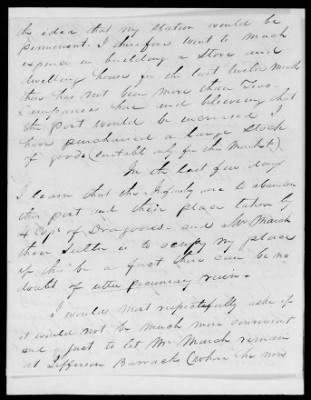 the idea that my station would be
permanent. I therefore went to much
expense in building a store and
dwelling house for the last twelve months
there has not been more than Two
Companies here and believing that
the Post would be increased I
have purchased a large stock
of goods (suitable only for this market).
In the last few days
I learn that the Infanty are to abandon
this post and their place taken by
4 Cops of Dragoons and Mr March
their Sutler is to occupy my place
if this be a fact there can be no
doubt of utter pecuniary ruin.
I would most respectfully ask if
it would not be much more convenient
and just to let Mr March remain
at Jefferson Barracks (where he now